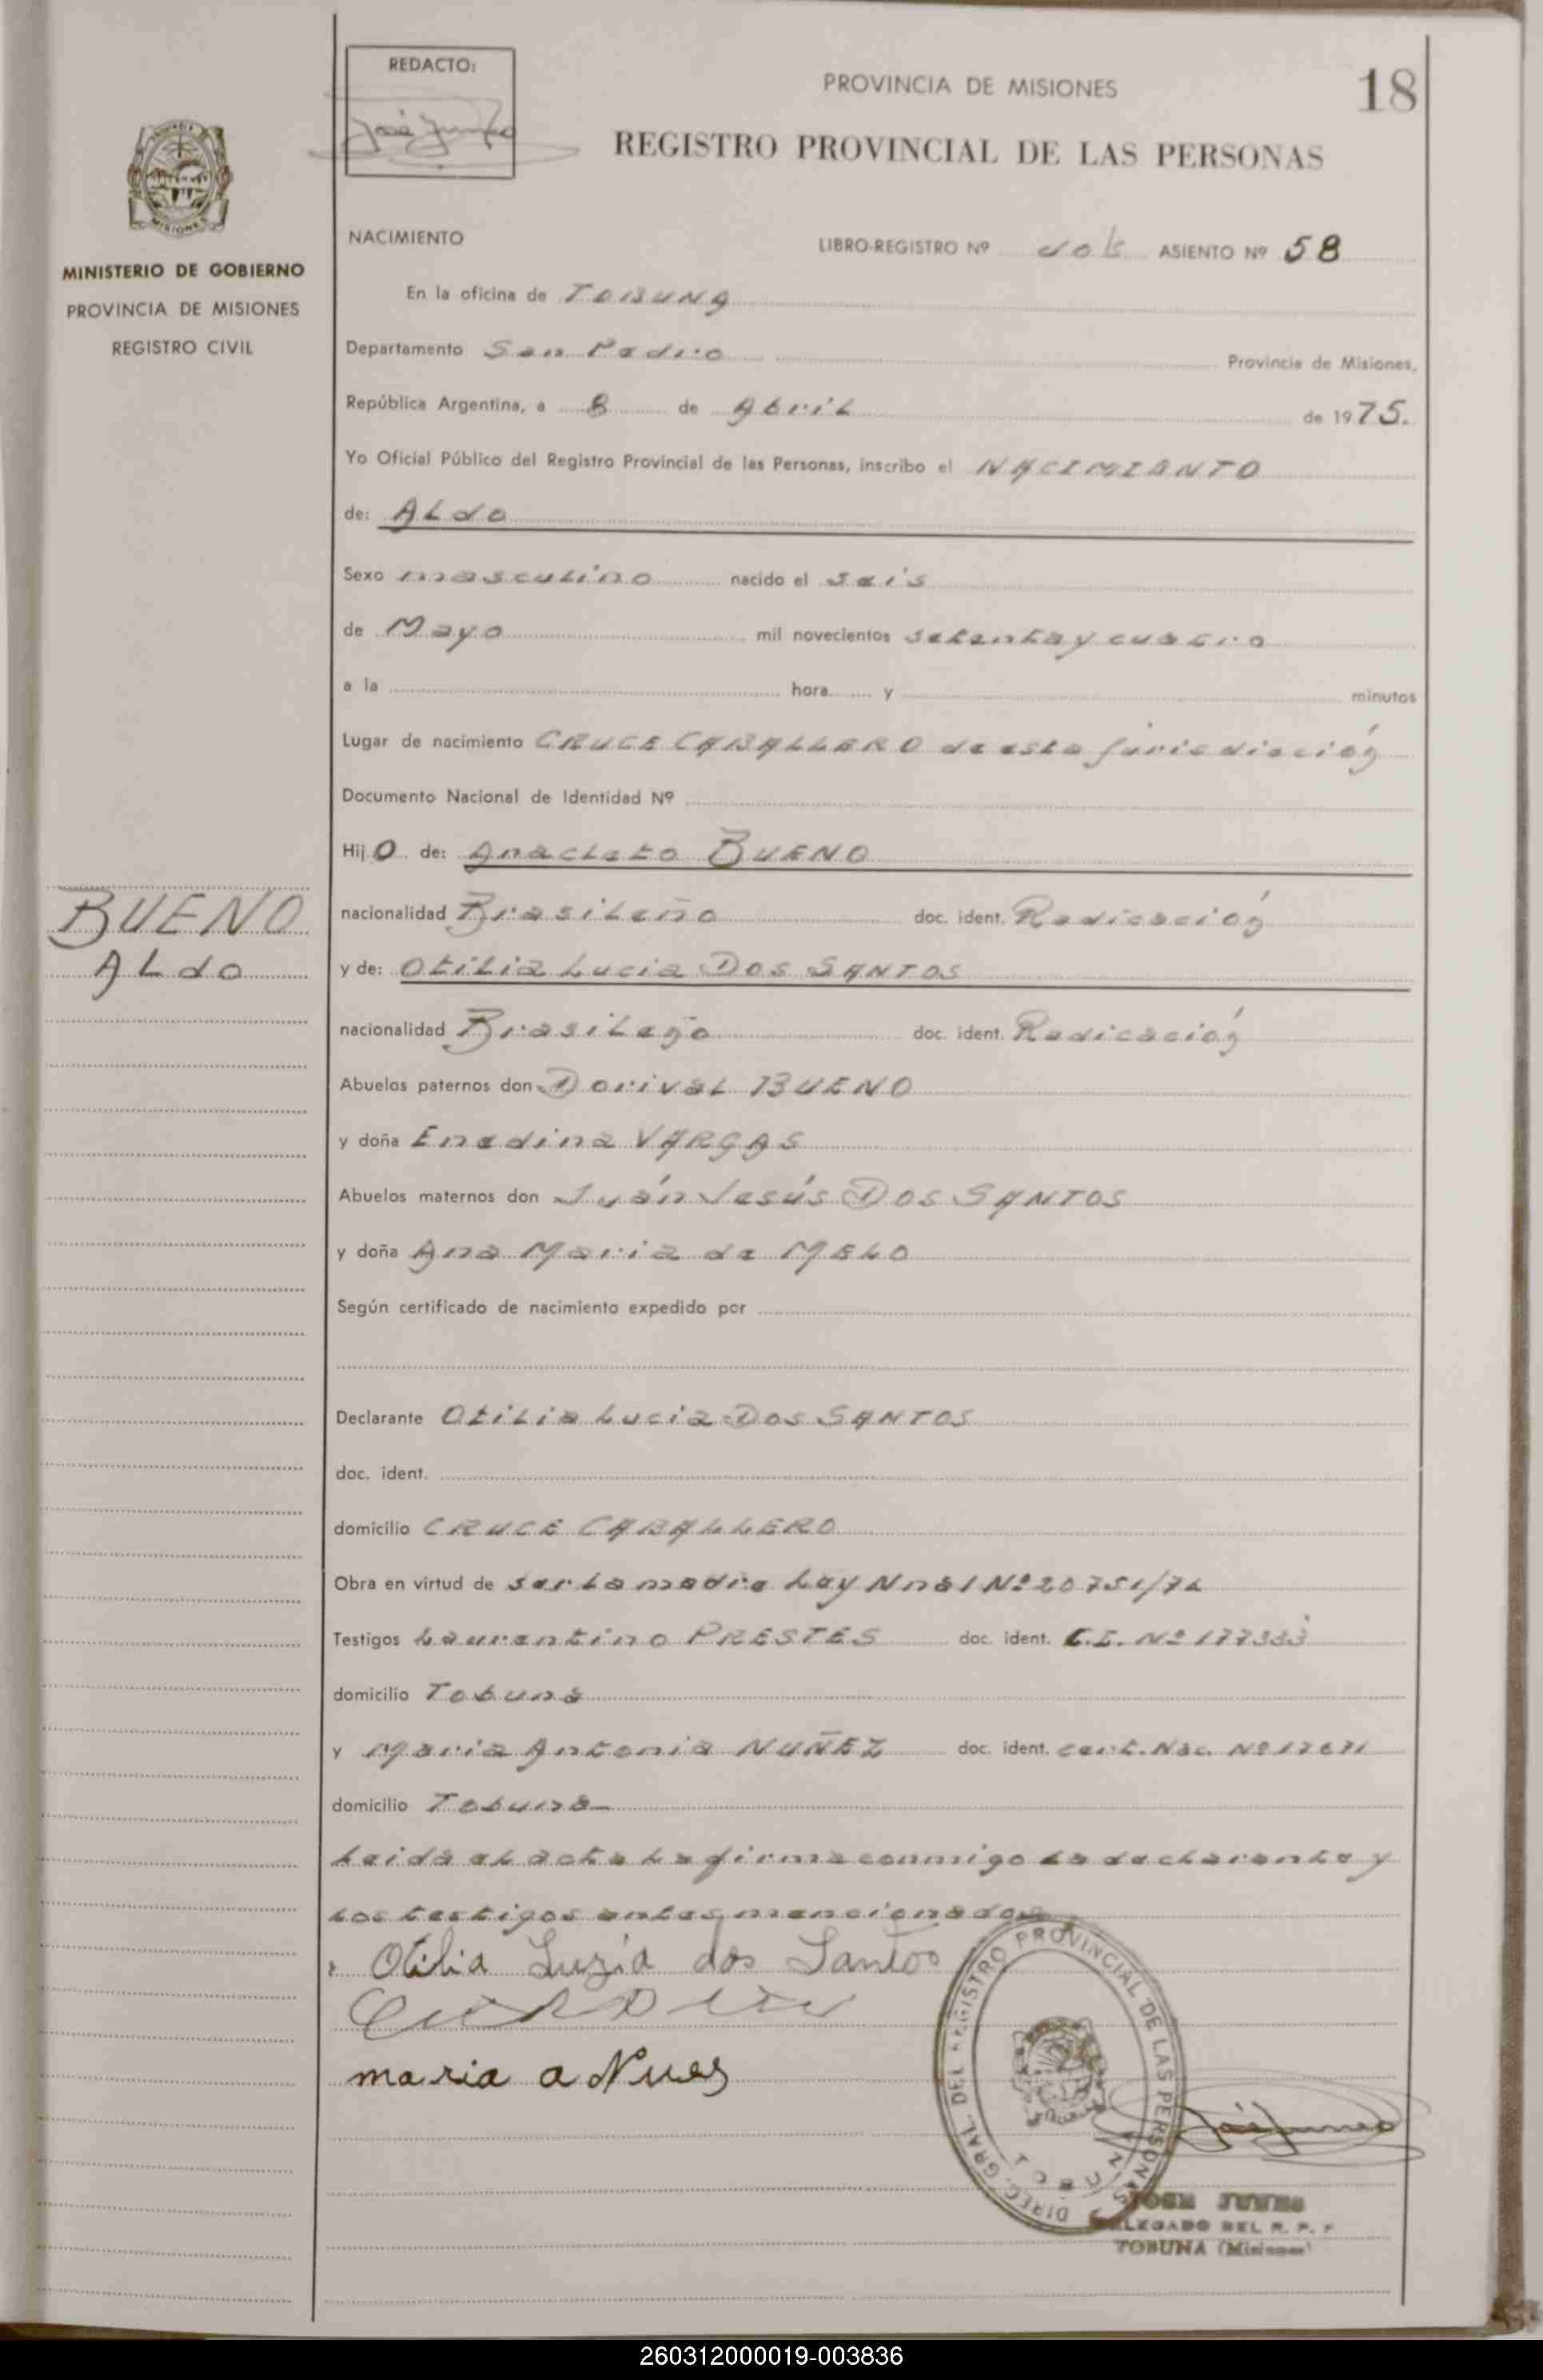 REDACTO:
PROVINCIA DE MISIONES
18
REGISTRO PROVINCIAL DE LAS PERSONAS
MISIONES
MINISTERIO DE GOBIERNO
PROVINCIA DE MISIONES
REGISTRO CIVIL
NACIMIENTO LIBRO-REGISTRO Nº ASIENTO Nº 58
En la oficina de TOBUNA
Departamento San Pedro Provincia de Misiones,
República Argentina, a 8 de Abril de 1975.
Yo Oficial Público del Registro Provincial de las Personas, inscribo el NACIMIENTO
de: ALdo
Sexo masculino nacido el seis
de Mayo mil novecientos setenta y cuatro
a la hora y minutos
Lugar de nacimiento CRUCE CABALLERO de esta jurisdicción
Documento Nacional de Identidad Nº
Hijo de: Anacleto BUENO
BUENO
ALdo
nacionalidad Brasileño doc. ident. Radicación
y de: Otilia Lucia Dos SANTOS
nacionalidad Brasileño doc. ident. Radicación
Abuelos paternos don Dorival BUENO
y doña Enedina VARGAS
Abuelos maternos don Juán Jesús Dos SANTOS
y doña Ana Maria de MELO
Según certificado de nacimiento expedido por
Declarante Otilia Lucia Dos SANTOS
doc. ident.
domicilio CRUCE CABALLERO
Obra en virtud de ser la madre Ley Nnal Nº 20751/74
Testigos Laurentino PRESTES doc. ident. C.I. Nº 177333
domicilio Tobuna
y Maria Antonia NUÑEZ doc. ident. cert. Nac. Nº 17671
domicilio Tobuna
Leida el acta la firma conmigo la declarante y
los testigos antes mencionados
Otilia Luzia dos Santos
maria a Nues
DIREC. GRAL. DEL REGISTRO PROVINCIAL DE LAS PERSONAS
TOBUNA
JOSE JUNES
DELEGADO DEL R. P. P
TOBUNA (Misiones)
260312000019-003836